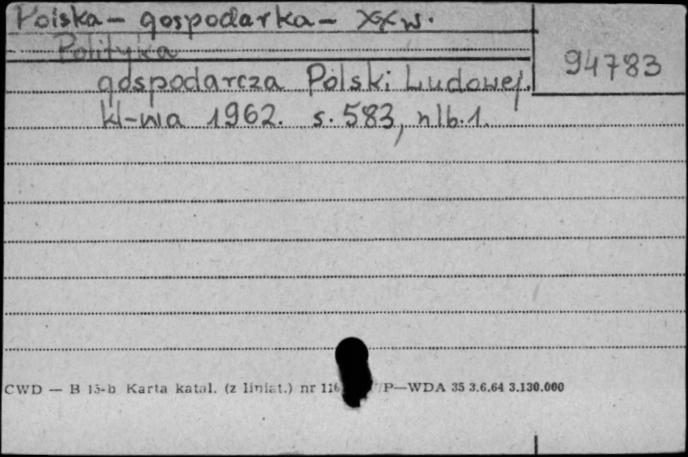 Polska - gospodarka - XX w.
Polityka
94783
gospodarcza Polski Ludowej.
W-wa 1962. s. 583, nlb. 1.
CWD — B 15-b Karta katal. (z liniat.) nr 116 P—WDA 35 3.6.64 3.130.000